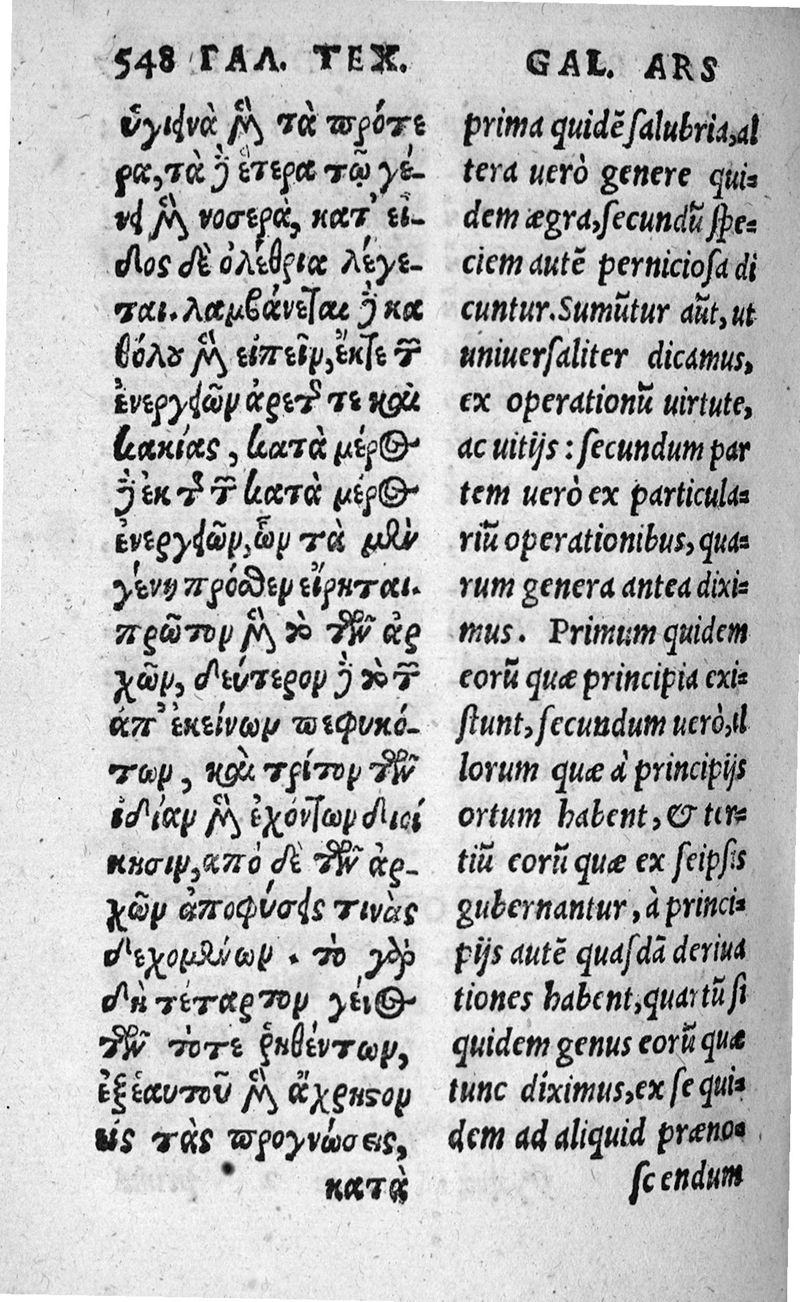 548 ΓΑΛ. ΤΕΧ.
ὑγιεινὰ μὲν τὰ πρότε
ρα, τὰ δὲ ἕτερα τῷ γέ-
νει μὲν νοσερὰ, κατ᾽ εἶ-
δος δὲ ὀλέθρια λέγε-
ται. λαμβάνεται δὲ κα
θόλου μὲν εἰπεῖν, ἔκ τε τῶν
ἐνεργειῶν ἀρετῆς τε καὶ
κακίας, κατὰ μέρος
δὲ ἐκ τῆς τῶν κατὰ μέρος
ἐνεργειῶν, ὧν τὰ μὲν
γένη πρόσθεν εἴρηται.
πρῶτον μὲν τὸ τῶν ἀρ
χῶν, δεύτερον δὲ τὸ τῶν
ἀπ᾽ ἐκείνων πεφυκό-
των, καὶ τρίτον τῶν
ἰδίαν μὲν ἐχόντων διοί
κησιν, ἀπὸ δὲ τῶν ἀρ-
χῶν ἀποφύσεις τινὰς
δεχομένων. τὸ γὰρ
δὴ τέταρτον γένος
τῶν τότε ῥηθέντων,
ἐξ ἑαυτοῦ μὲν ἄχρηστον
εἰς τὰς προγνώσεις,
κατὰ
GAL. ARS
prima quidẽ salubria, al
tera uerò genere qui-
dem ægra, secundũ spe-
ciem autẽ perniciosa di
cuntur. Sumũtur aũt, ut
uniuersaliter dicamus,
ex operationũ uirtute,
ac uitijs: secundum par
tem uerò ex particula-
riũ operationibus, qua-
rum genera antea dixi-
mus. Primum quidem
eorũ quæ principia exi-
stunt, secundum uerò, il
lorum quæ à principijs
ortum habent, & ter-
tiũ eorũ quæ ex seipsis
gubernantur, à princi-
pijs autẽ quasdã deriua
tiones habent, quartũ si
quidem genus eorũ quæ
tunc diximus, ex se qui-
dem ad aliquid præno-
scendum